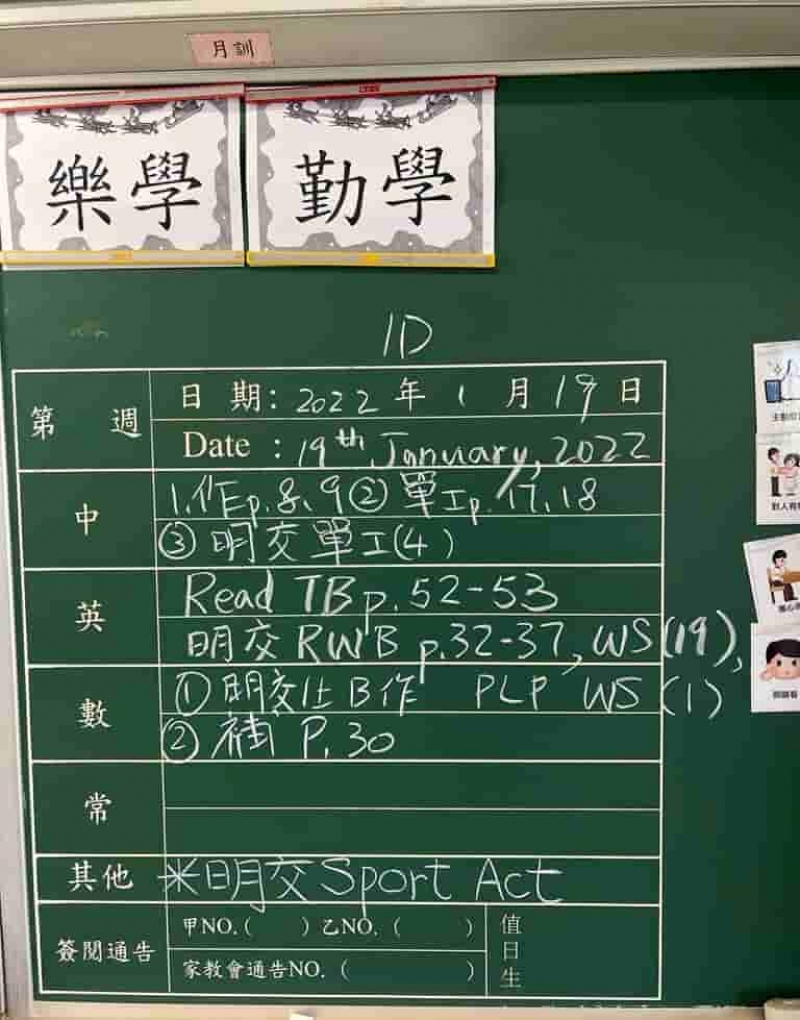 月訓
樂學 勤學
1D
第 週
日 期: 2022 年 1 月 19 日
Date : 19th January, 2022
中
1.作E p.8、9 ② 單工p.17、18
③ 明交單工(4)
英
Read TB p.52-53
明交 RWB p.32-37, WS(19),
PLP WS (1)
數
① 明交 B作
② 補 P.30
常
其他
*明交 Sport Act
簽閱通告
甲NO.( ) 乙NO. ( )
家教會通告NO. ( )
值日生